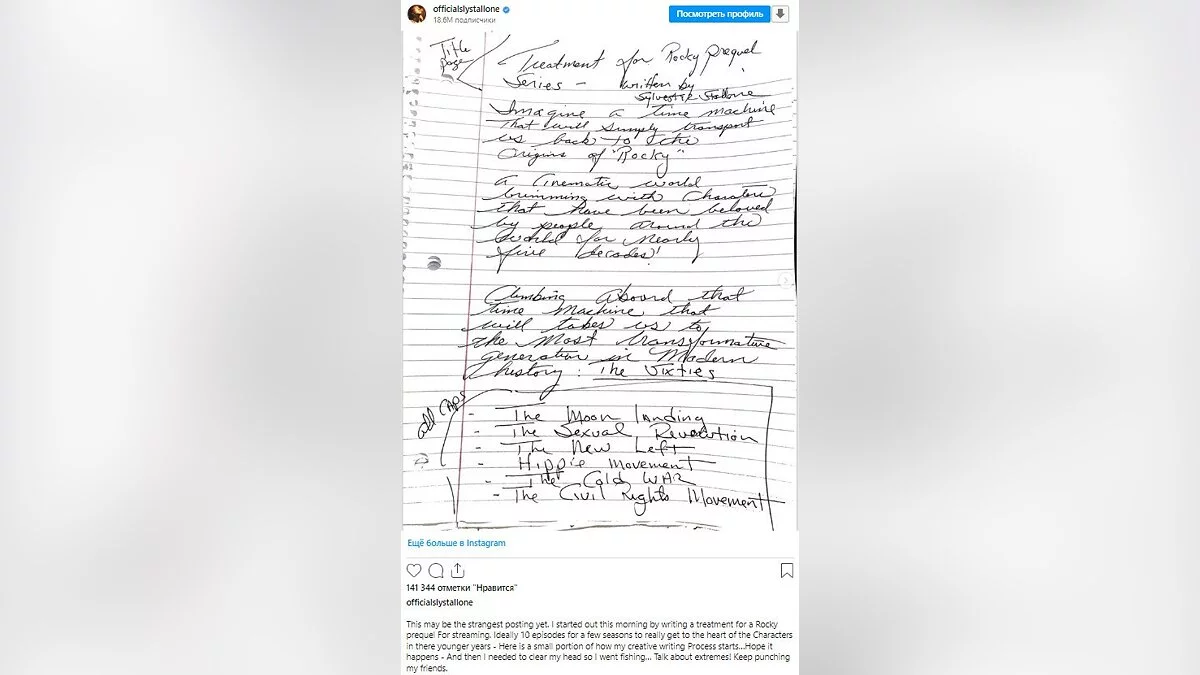 officialslystallone
18.6M подписчики
Посмотреть профиль
Title
page
Treatment for Rocky prequel
Series - written by
Sylvester Stallone
Imagine a time machine
That will simply transport
us back to the
Origins of "Rocky"
A Cinematic world
brimming with Characters
that have been beloved
by people around the
World for Nearly
five decades!
Climbing Aboard that
time Machine that
will takes us to
the Most transformative
generation in Modern
history: The Sixties
all CAPS
- The Moon landing
- The Sexual Revolution
- The New Left
- Hippie Movement
- The Cold WAR
- The Civil Rights Movement
Ещё больше в Instagram
141 344 отметки "Нравится"
officialslystallone
This may be the strangest posting yet. I started out this morning by writing a treatment for a Rocky
prequel For streaming. Ideally 10 episodes for a few seasons to really get to the heart of the Characters
in there younger years - Here is a small portion of how my creative writing Process starts...Hope it
happens - And then I needed to clear my head so I went fishing... Talk about extremes! Keep punching
my friends.